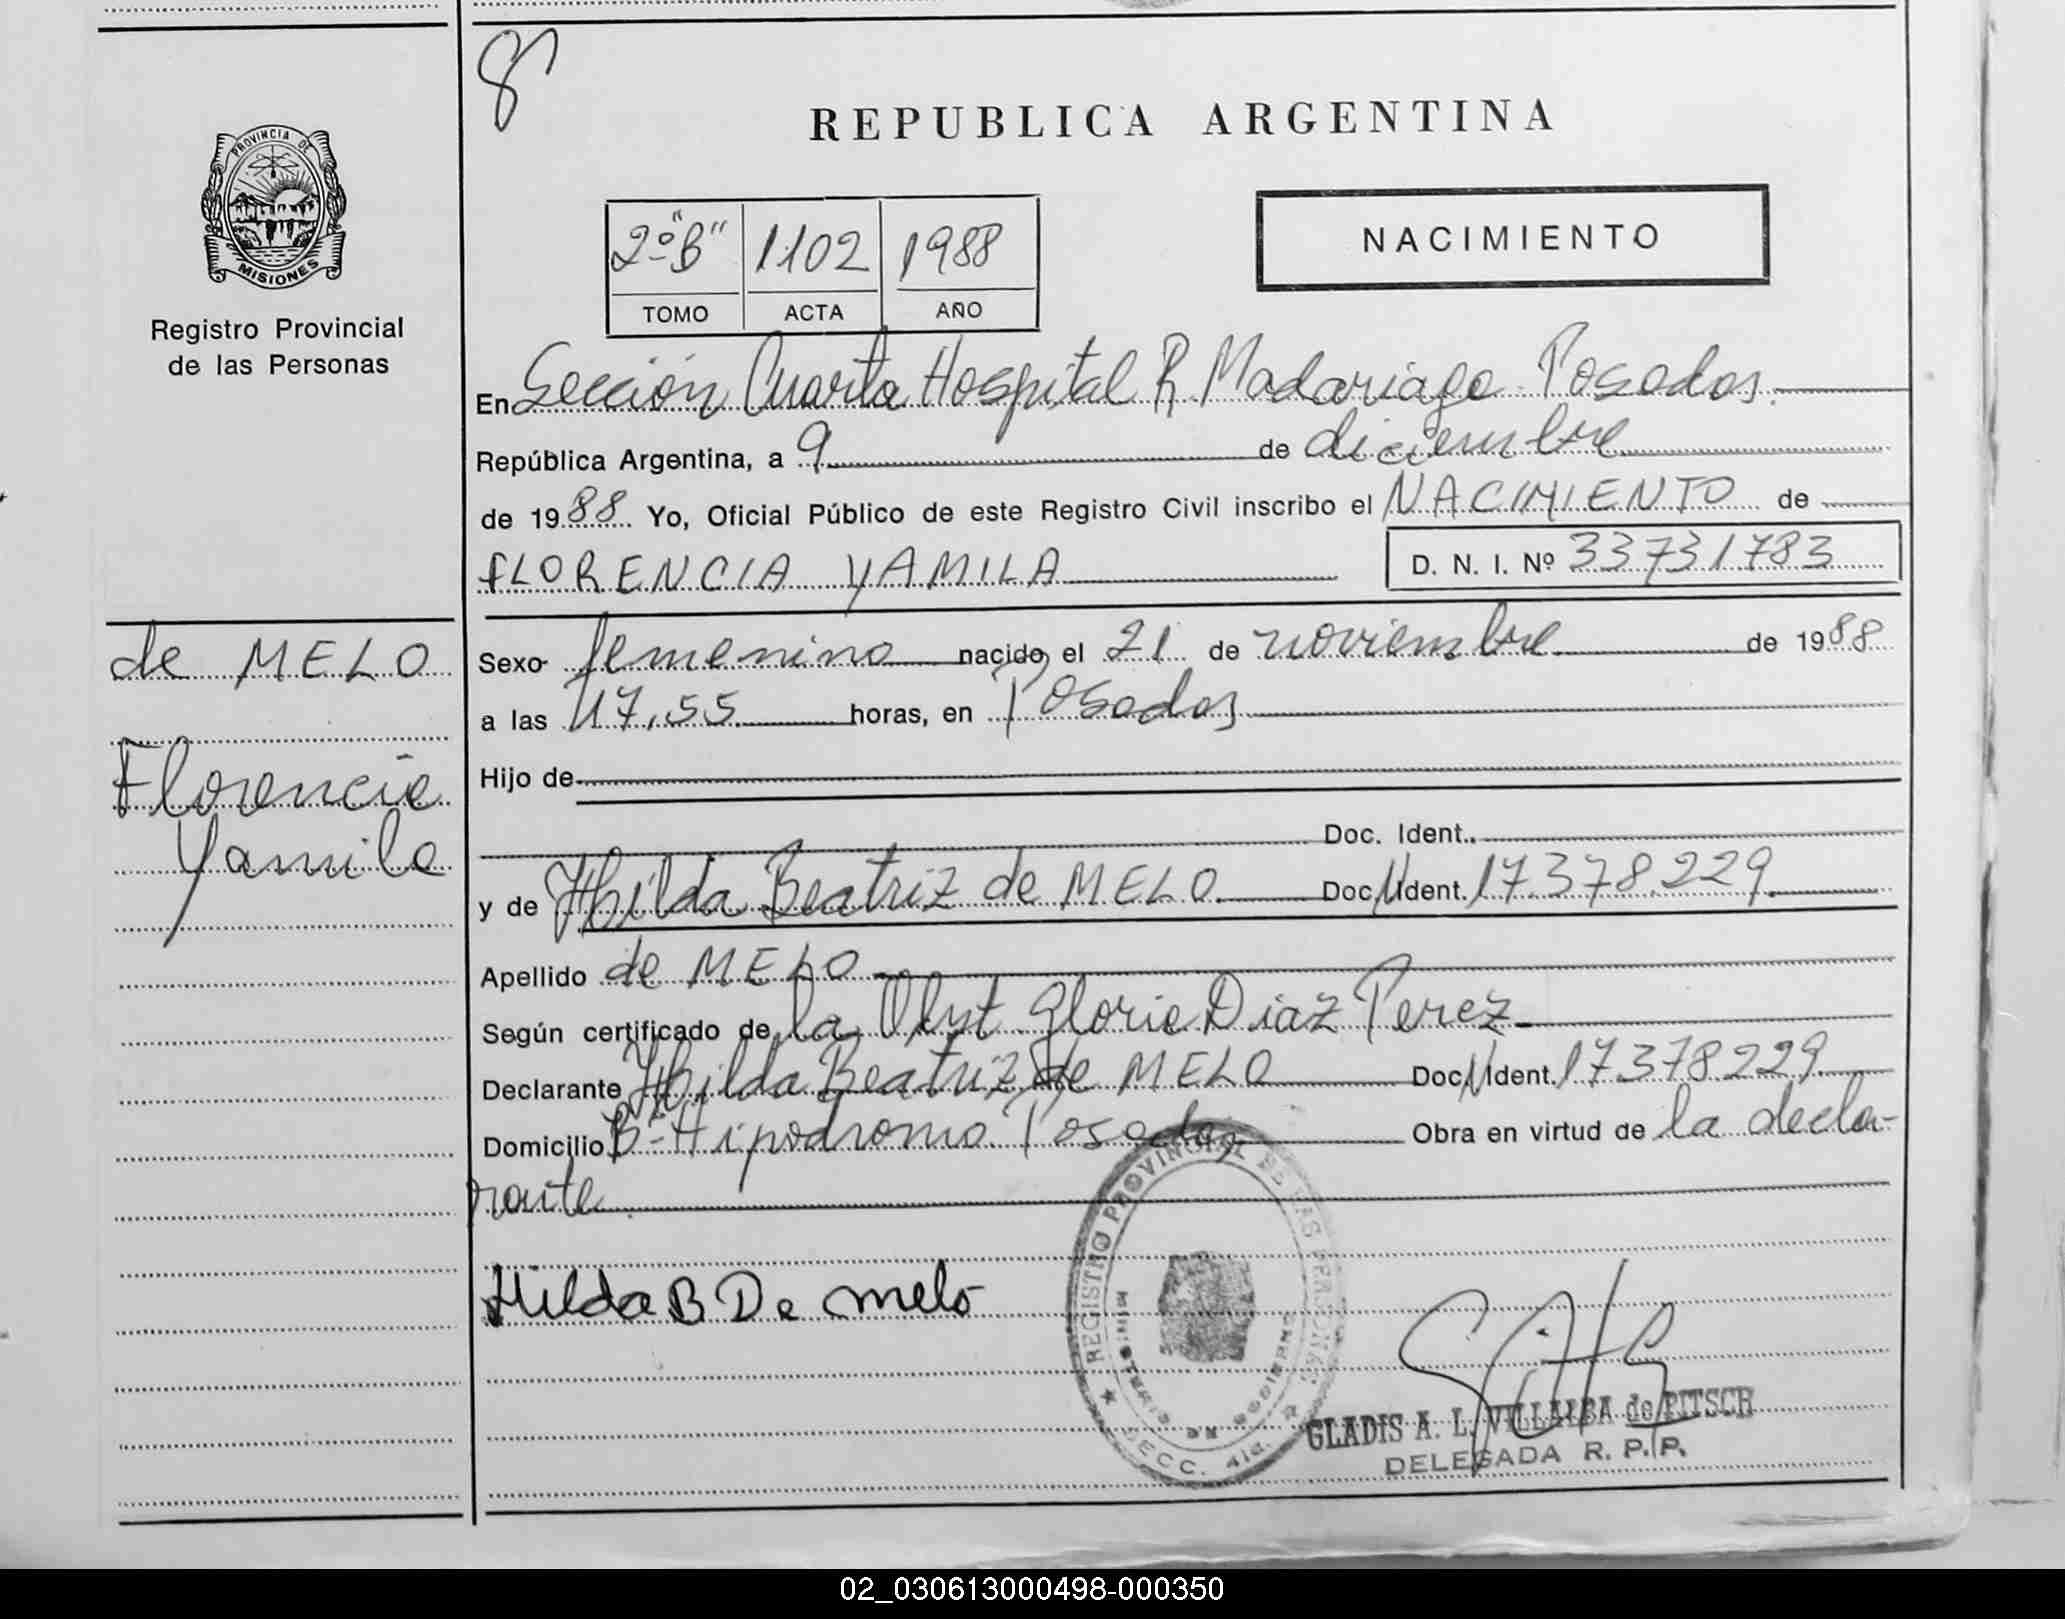 8
REPUBLICA ARGENTINA
PROVINCIA DE
MISIONES
Registro Provincial
de las Personas
2º "B" 1102 1988
TOMO ACTA AÑO
NACIMIENTO
En Sección Cuarta Hospital R. Madariaga Posadas.
República Argentina, a 9 de diciembre
de 1988 Yo, Oficial Público de este Registro Civil inscribo el NACIMIENTO de
FLORENCIA YAMILA D. N. I. Nº 33731783
de MELO
Florencia
Yamila
Sexo femenino nacido el 21 de noviembre de 1988
a las 17,55 horas, en Posadas
Hijo de
Doc. Ident.
y de Hilda Beatriz de MELO Doc. Ident. 17.378.229
Apellido de MELO
Según certificado de la Obst Gloria Diaz Perez
Declarante Hilda Beatriz de MELO Doc. Ident. 17378229
Domicilio Bº Hipodromo Posadas Obra en virtud de la decla-
rante
Hilda B De melo
REGISTRO PROVINCIAL DE LAS PERSONAS
MINISTERIO DE GOBIERNO
SECC. 4ta.
GLADIS A. L. VILLALBA de PITSCH
DELEGADA R. P. P.
02_030613000498-000350